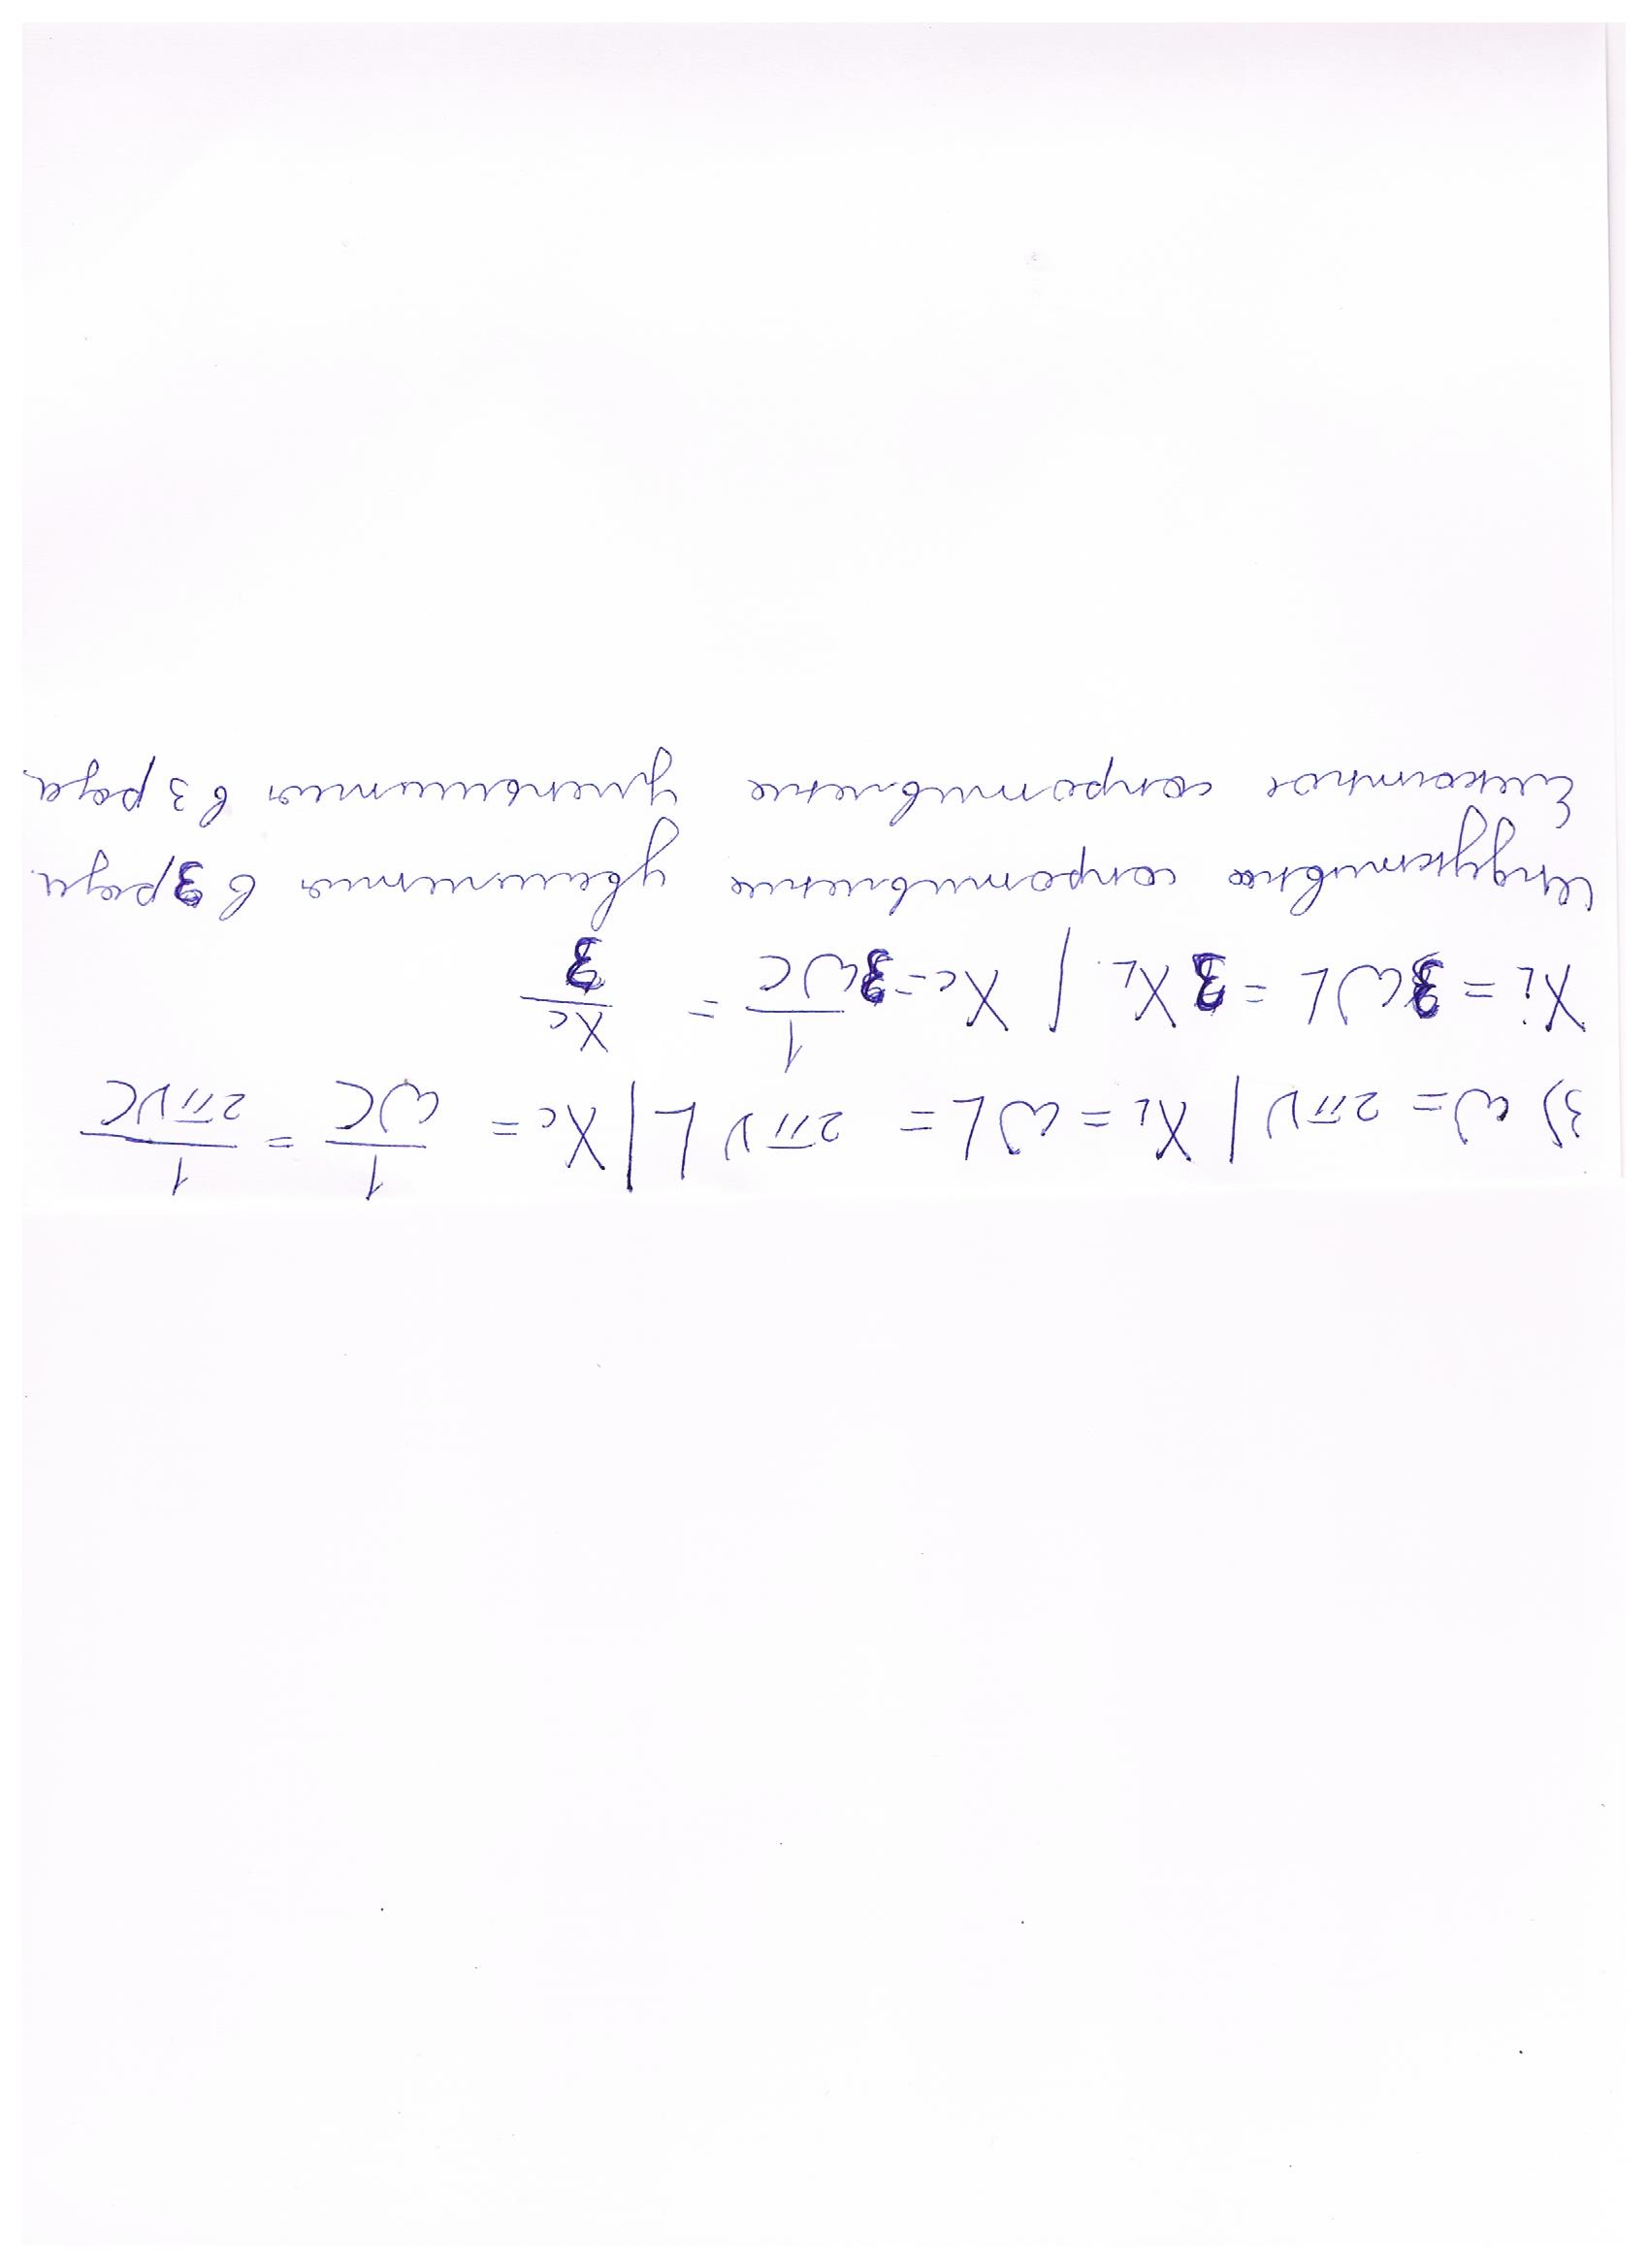 3) ω = 2πν | X_L = ωL = 2πνL | X_C = 1/ωC = 1/2πνC
X_L = 3ωL = 3X_L. | X_C = 1/3ωC = X_C/3
Индуктивное сопротивление увеличится в 3 раза.
Емкостное сопротивление уменьшится в 3 раза.